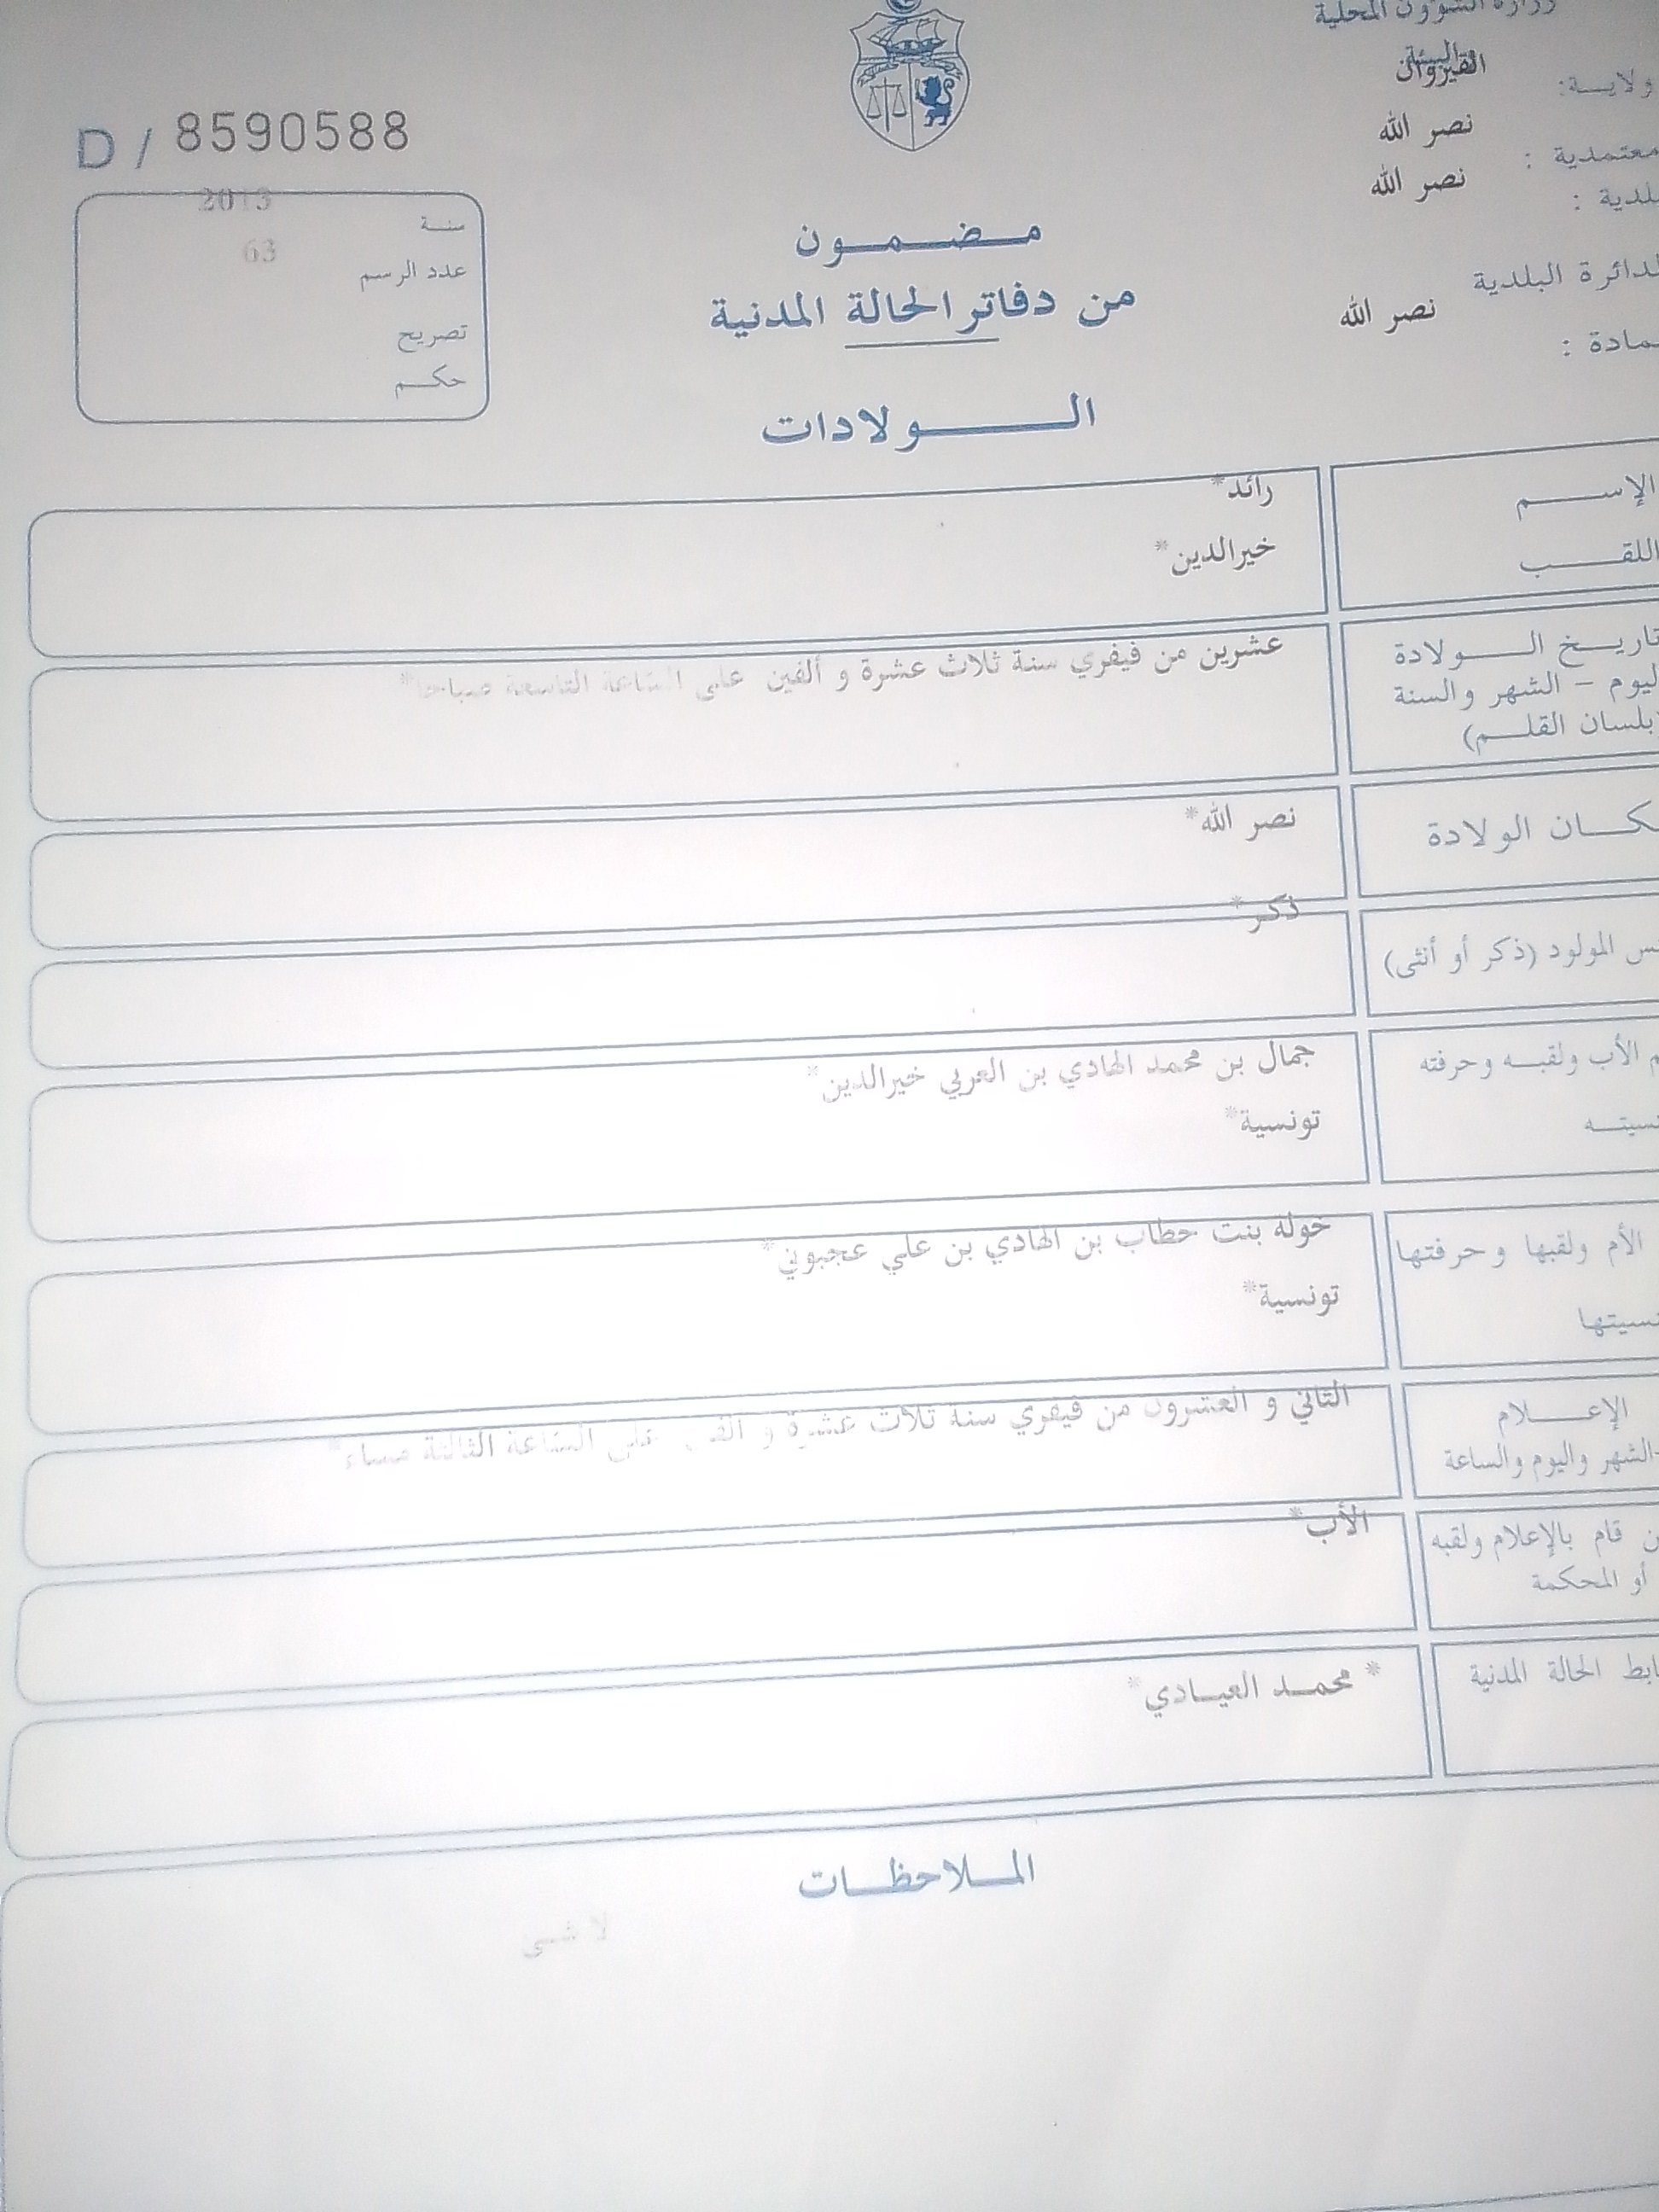 وزارة الشؤون المحلية
والبيئة
ولاية: القيروان
معتمدية : نصر الله
بلدية : نصر الله
الدائرة البلدية
عمادة : نصر الله
D / 8590588
سنة 2013
عدد الرسم 63
تصريح
حكم
مضمون
من دفاتر الحالة المدنية
الولادات
الإسم رائد*
اللقب خيرالدين*
تاريخ الولادة عشرين من فيفري سنة ثلاث عشرة و ألفين على الساعة التاسعة صباحا*
اليوم - الشهر والسنة
(بلسان القلم)
مكان الولادة نصر الله*
جنس المولود (ذكر أو أنثى) ذكر*
الأب ولقبه وحرفته جمال بن محمد الهادي بن العربي خيرالدين*
تونسية*
الأم ولقبها وحرفتها خوله بنت حطاب بن الهادي بن علي عجبوني*
تونسية*
الإعلام الثاني و العشرون من فيفري سنة ثلاث عشرة و ألفين على الساعة الثالثة مساء*
الشهر واليوم والساعة
من قام بالإعلام ولقبه الأب*
أو المحكمة
ضابط الحالة المدنية * محمد العيادي*
الملاحظات
لا شيى